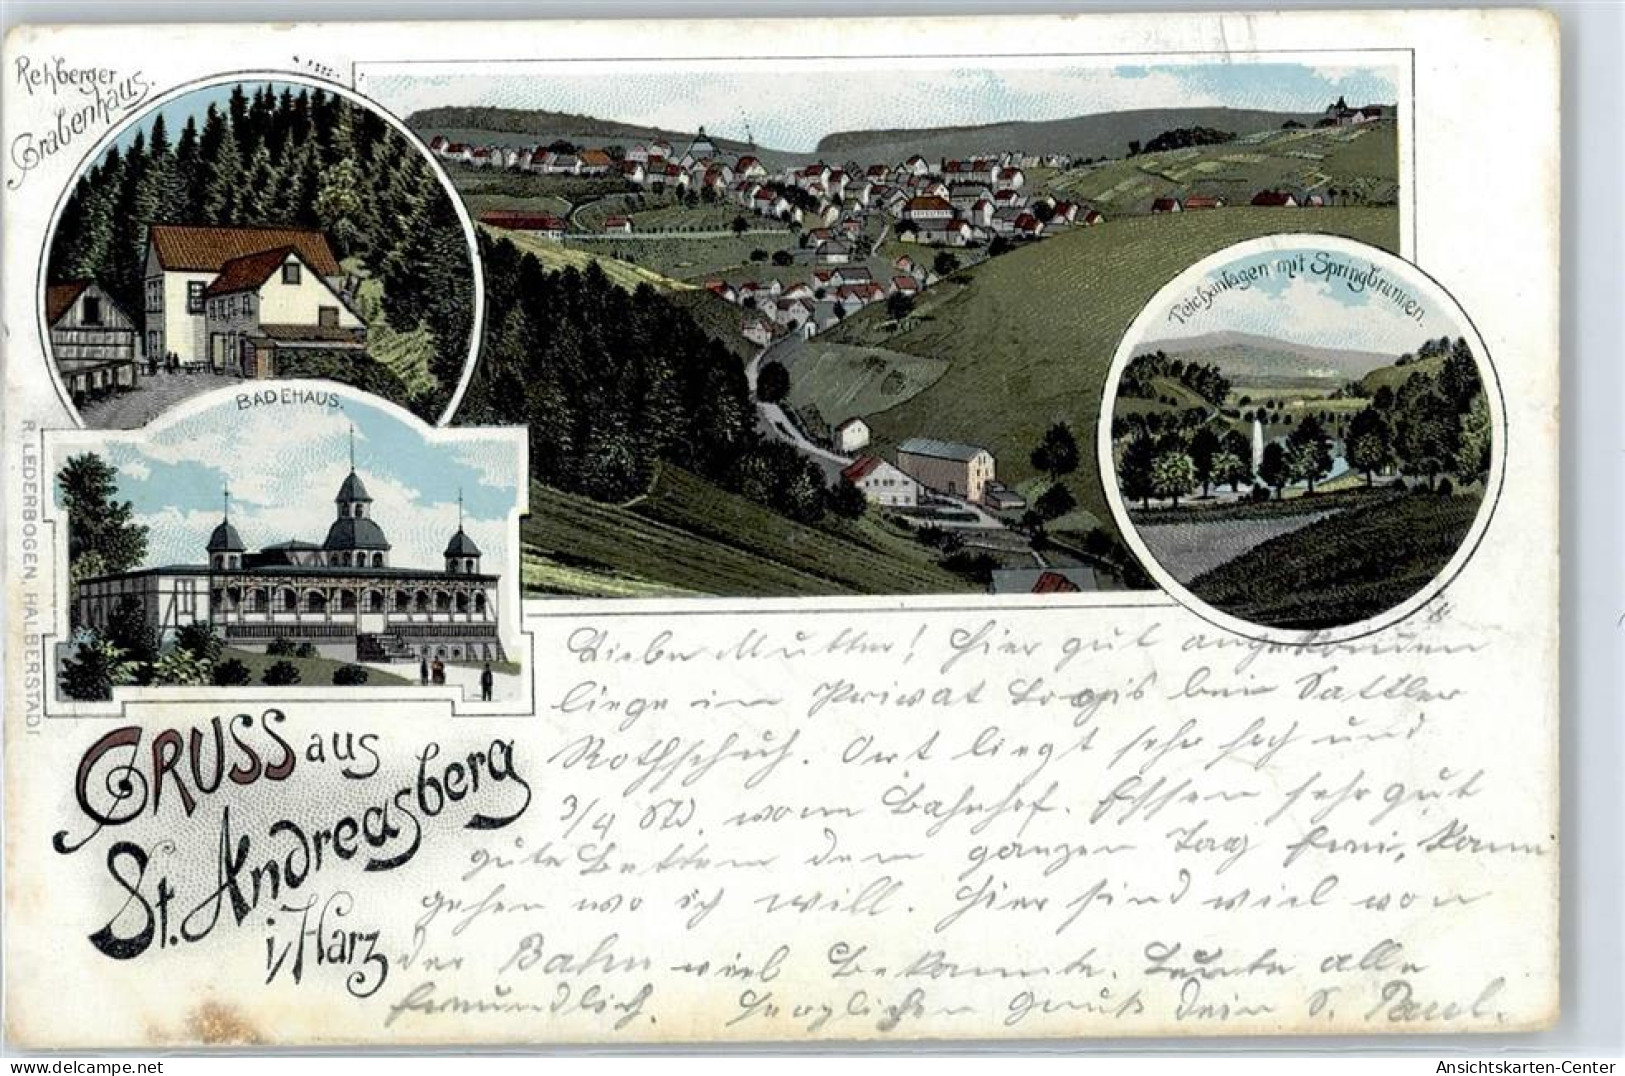 Rehberger
Grabenhaus.
BADEHAUS.
Teichanlagen mit Springbrunnen.
R. LEDERBOGEN, HALBERSTADT
GRUSS aus
St. Andreasberg
i/Harz
Liebe Mutter! Hier gut angekommen
liege im Privat Logis bei Sattler
Rothschuh. Ort liegt sehr hoch und
3/4 Std. vom Bahnhof. Essen sehr gut
gute Betten den ganzen Tag frei, kann
gehen wo ich will. Hier sind viel von
der Bahn viel Bekannte. Leute alle
freundlich. Herzlichen Gruß Dein S. Paul.
Ansichtskarten-Center